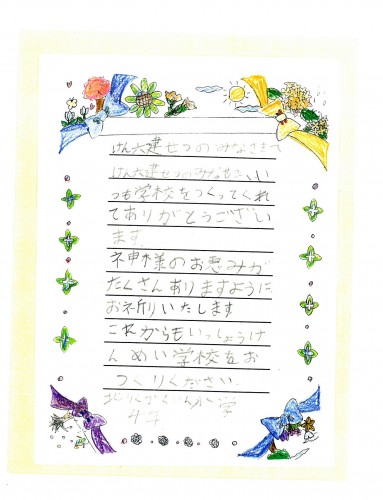 けん大建せつのみなさまへ
けん大建せつのみなさま、い
つも学校をつくってくれ
てありがとうござい
ます。
神様のお恵みが
たくさんありますように
お祈りいたします
これからもいっしょうけ
んめい学校をお
つくりください。
小学
4年